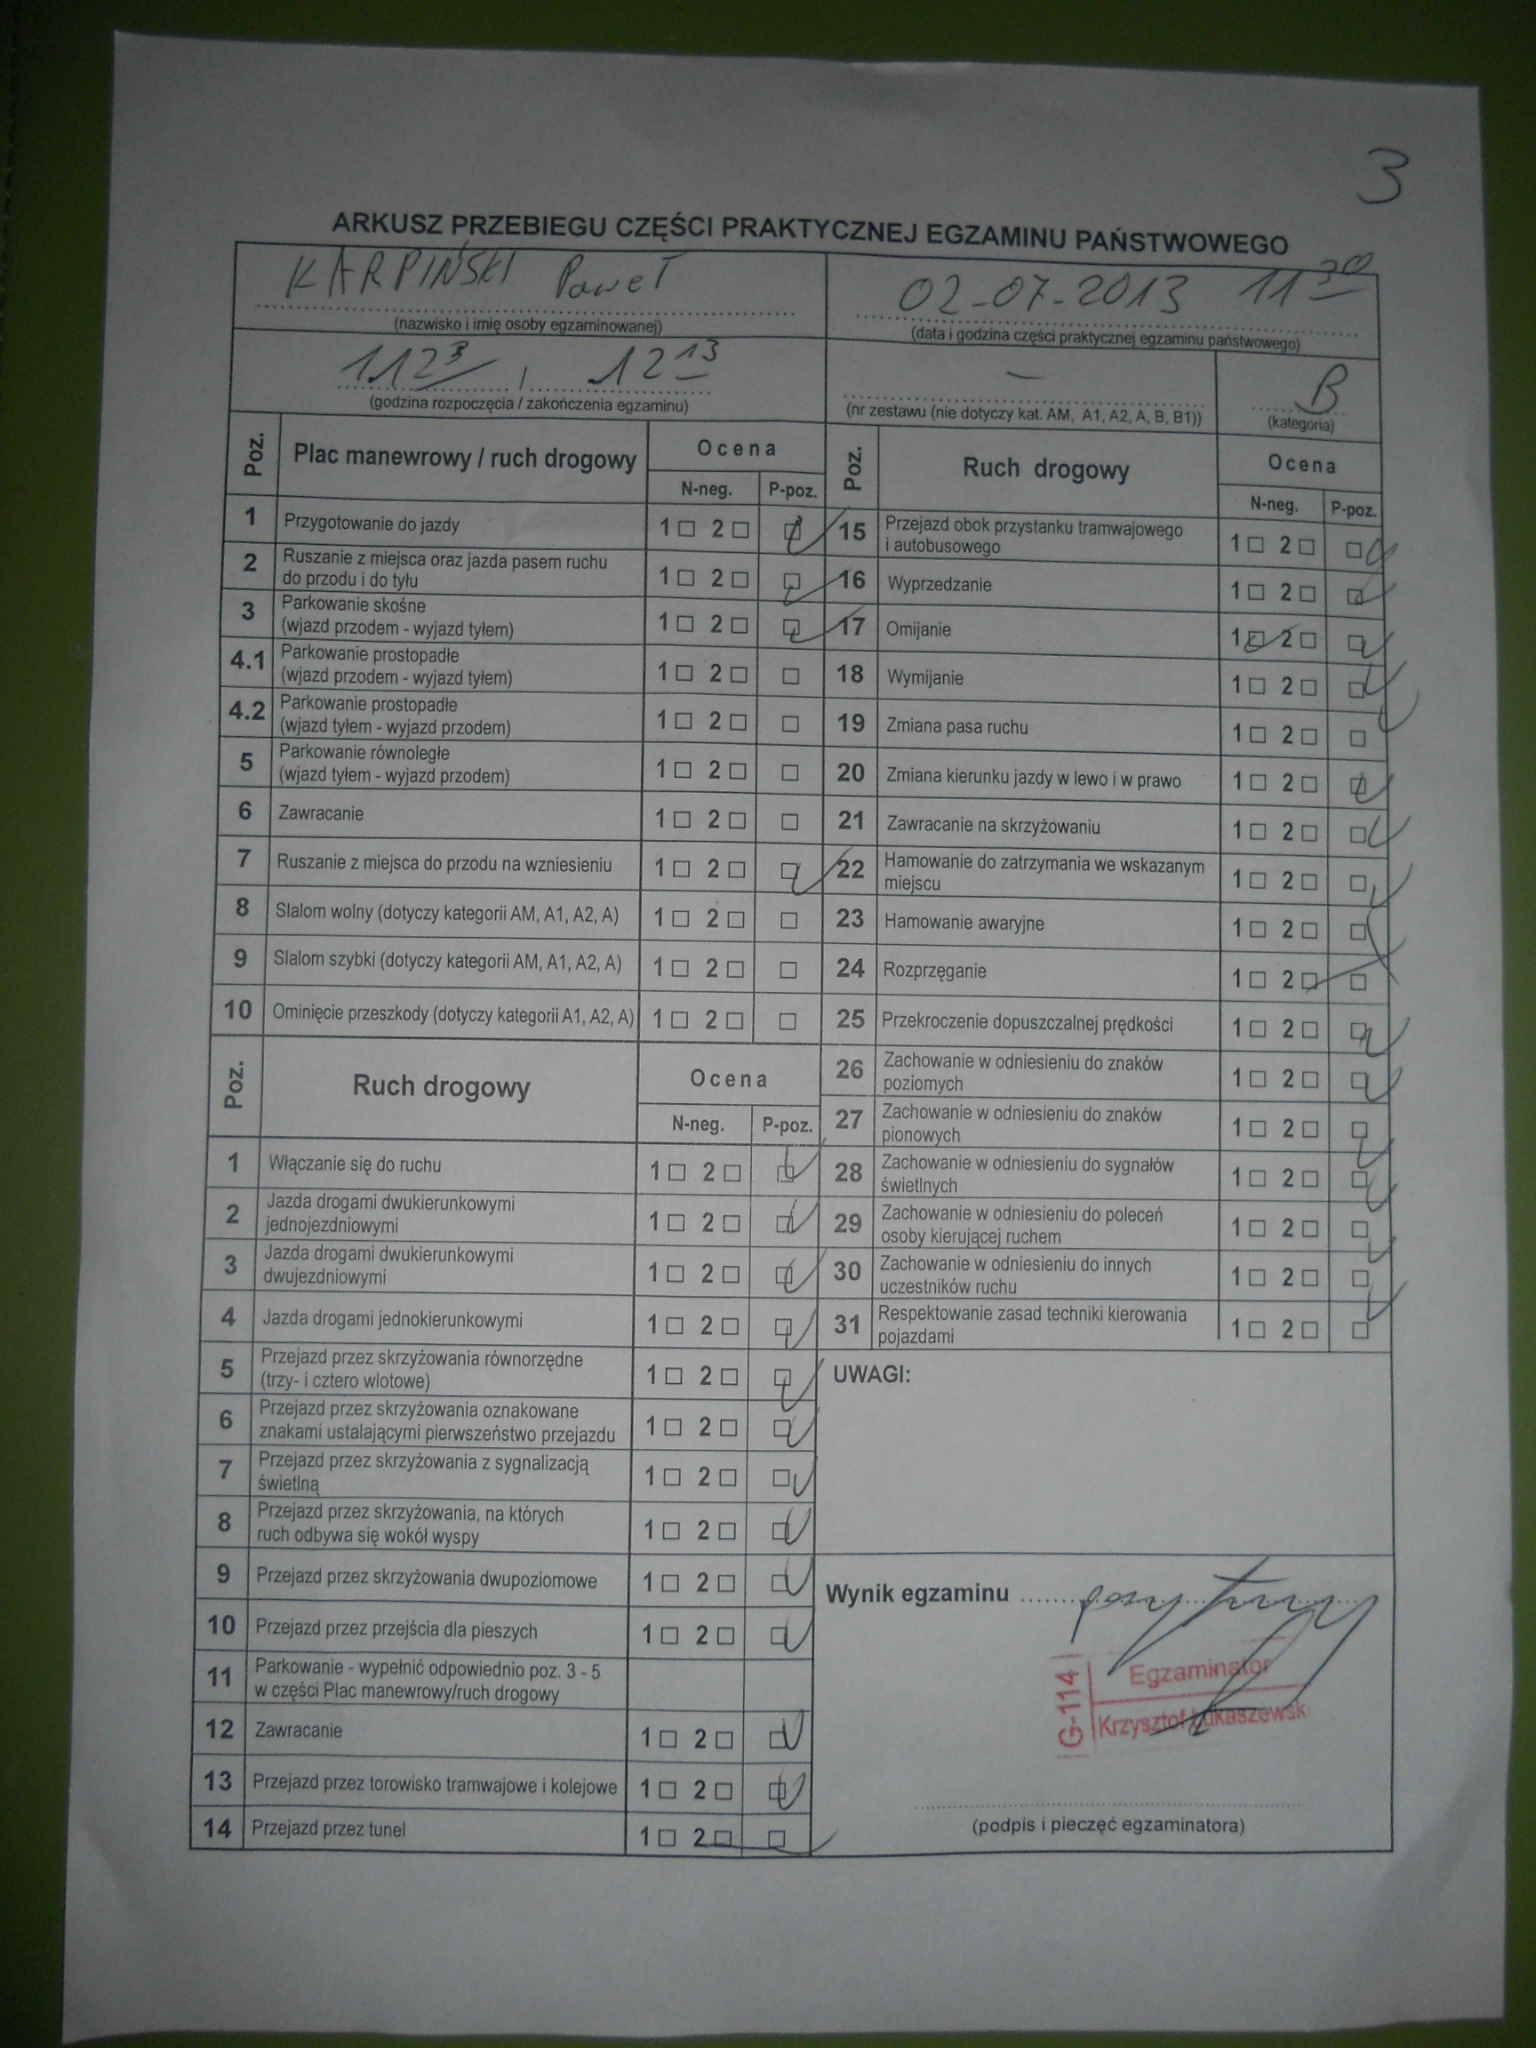 3
ARKUSZ PRZEBIEGU CZĘŚCI PRAKTYCZNEJ EGZAMINU PAŃSTWOWEGO
KARPIŃSKI Paweł
(nazwisko i imię osoby egzaminowanej)
02-07-2013 11 30
(data i godzina części praktycznej egzaminu państwowego)
11 23 / 12 13
(godzina rozpoczęcia / zakończenia egzaminu)
–
(nr zestawu (nie dotyczy kat. AM, A1, A2, A, B, B1))
B
(kategoria)
Poz. Plac manewrowy / ruch drogowy Ocena
N-neg. P-poz.
1 Przygotowanie do jazdy 1 □ 2 □ □
2 Ruszanie z miejsca oraz jazda pasem ruchu
do przodu i do tyłu 1 □ 2 □ □
3 Parkowanie skośne
(wjazd przodem - wyjazd tyłem) 1 □ 2 □ □
4.1 Parkowanie prostopadłe
(wjazd przodem - wyjazd tyłem) 1 □ 2 □ □
4.2 Parkowanie prostopadłe
(wjazd tyłem - wyjazd przodem) 1 □ 2 □ □
5 Parkowanie równoległe
(wjazd tyłem - wyjazd przodem) 1 □ 2 □ □
6 Zawracanie 1 □ 2 □ □
7 Ruszanie z miejsca do przodu na wzniesieniu 1 □ 2 □ □
8 Slalom wolny (dotyczy kategorii AM, A1, A2, A) 1 □ 2 □ □
9 Slalom szybki (dotyczy kategorii AM, A1, A2, A) 1 □ 2 □ □
10 Ominięcie przeszkody (dotyczy kategorii A1, A2, A) 1 □ 2 □ □
Poz. Ruch drogowy Ocena
N-neg. P-poz.
1 Włączanie się do ruchu 1 □ 2 □ □
2 Jazda drogami dwukierunkowymi
jednojezdniowymi 1 □ 2 □ □
3 Jazda drogami dwukierunkowymi
dwujezdniowymi 1 □ 2 □ □
4 Jazda drogami jednokierunkowymi 1 □ 2 □ □
5 Przejazd przez skrzyżowania równorzędne
(trzy- i cztero wlotowe) 1 □ 2 □ □
6 Przejazd przez skrzyżowania oznakowane
znakami ustalającymi pierwszeństwo przejazdu 1 □ 2 □ □
7 Przejazd przez skrzyżowania z sygnalizacją
świetlną 1 □ 2 □ □
8 Przejazd przez skrzyżowania, na których
ruch odbywa się wokół wyspy 1 □ 2 □ □
9 Przejazd przez skrzyżowania dwupoziomowe 1 □ 2 □ □
10 Przejazd przez przejścia dla pieszych 1 □ 2 □ □
11 Parkowanie - wypełnić odpowiednio poz. 3 - 5
w części Plac manewrowy/ruch drogowy
12 Zawracanie 1 □ 2 □ □
13 Przejazd przez torowisko tramwajowe i kolejowe 1 □ 2 □ □
14 Przejazd przez tunel 1 □ 2 □ □
Poz. Ruch drogowy Ocena
N-neg. P-poz.
15 Przejazd obok przystanku tramwajowego
i autobusowego 1 □ 2 □ □
16 Wyprzedzanie 1 □ 2 □ □
17 Omijanie 1 □ 2 □ □
18 Wymijanie 1 □ 2 □ □
19 Zmiana pasa ruchu 1 □ 2 □ □
20 Zmiana kierunku jazdy w lewo i w prawo 1 □ 2 □ □
21 Zawracanie na skrzyżowaniu 1 □ 2 □ □
22 Hamowanie do zatrzymania we wskazanym
miejscu 1 □ 2 □ □
23 Hamowanie awaryjne 1 □ 2 □ □
24 Rozprzęganie 1 □ 2 □ □
25 Przekroczenie dopuszczalnej prędkości 1 □ 2 □ □
26 Zachowanie w odniesieniu do znaków
poziomych 1 □ 2 □ □
27 Zachowanie w odniesieniu do znaków
pionowych 1 □ 2 □ □
28 Zachowanie w odniesieniu do sygnałów
świetlnych 1 □ 2 □ □
29 Zachowanie w odniesieniu do poleceń
osoby kierującej ruchem 1 □ 2 □ □
30 Zachowanie w odniesieniu do innych
uczestników ruchu 1 □ 2 □ □
31 Respektowanie zasad techniki kierowania
pojazdami 1 □ 2 □ □
UWAGI:
Wynik egzaminu pozytywny
G-114
Egzaminator
Krzysztof Łukaszewsk
(podpis i pieczęć egzaminatora)